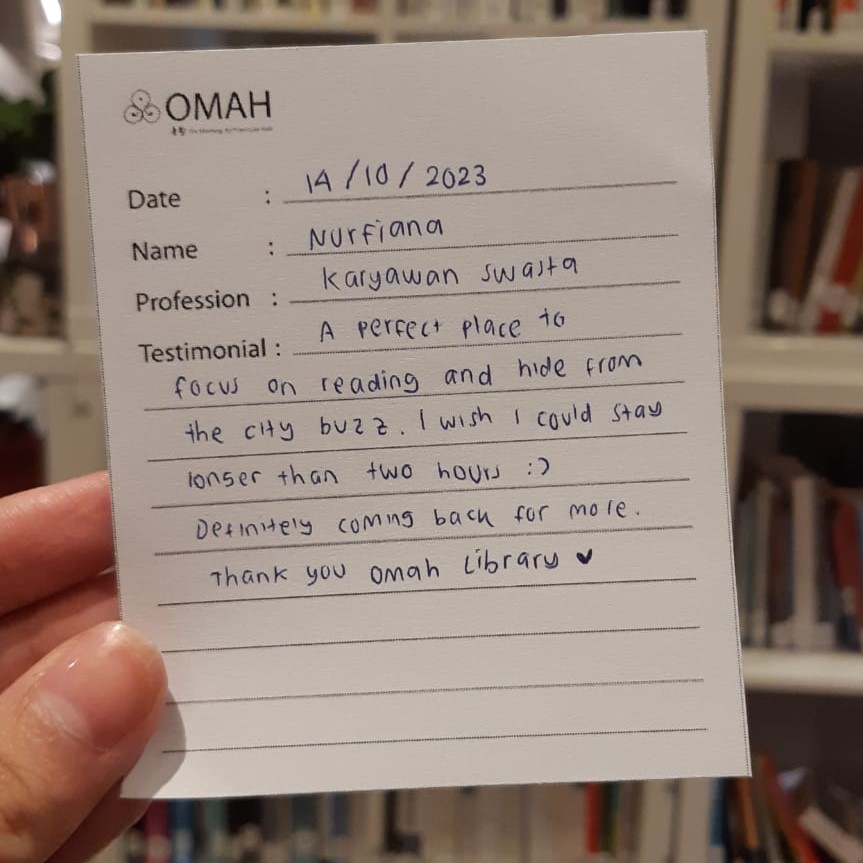 OMAH
Date : 14/10/2023
Name : Nurfiana
Profession : Karyawan swasta
Testimonial : A perfect place to
focus on reading and hide from
the city buzz. I wish I could stay
longer than two hours :)
Definitely coming back for more.
Thank you Omah Library ♥